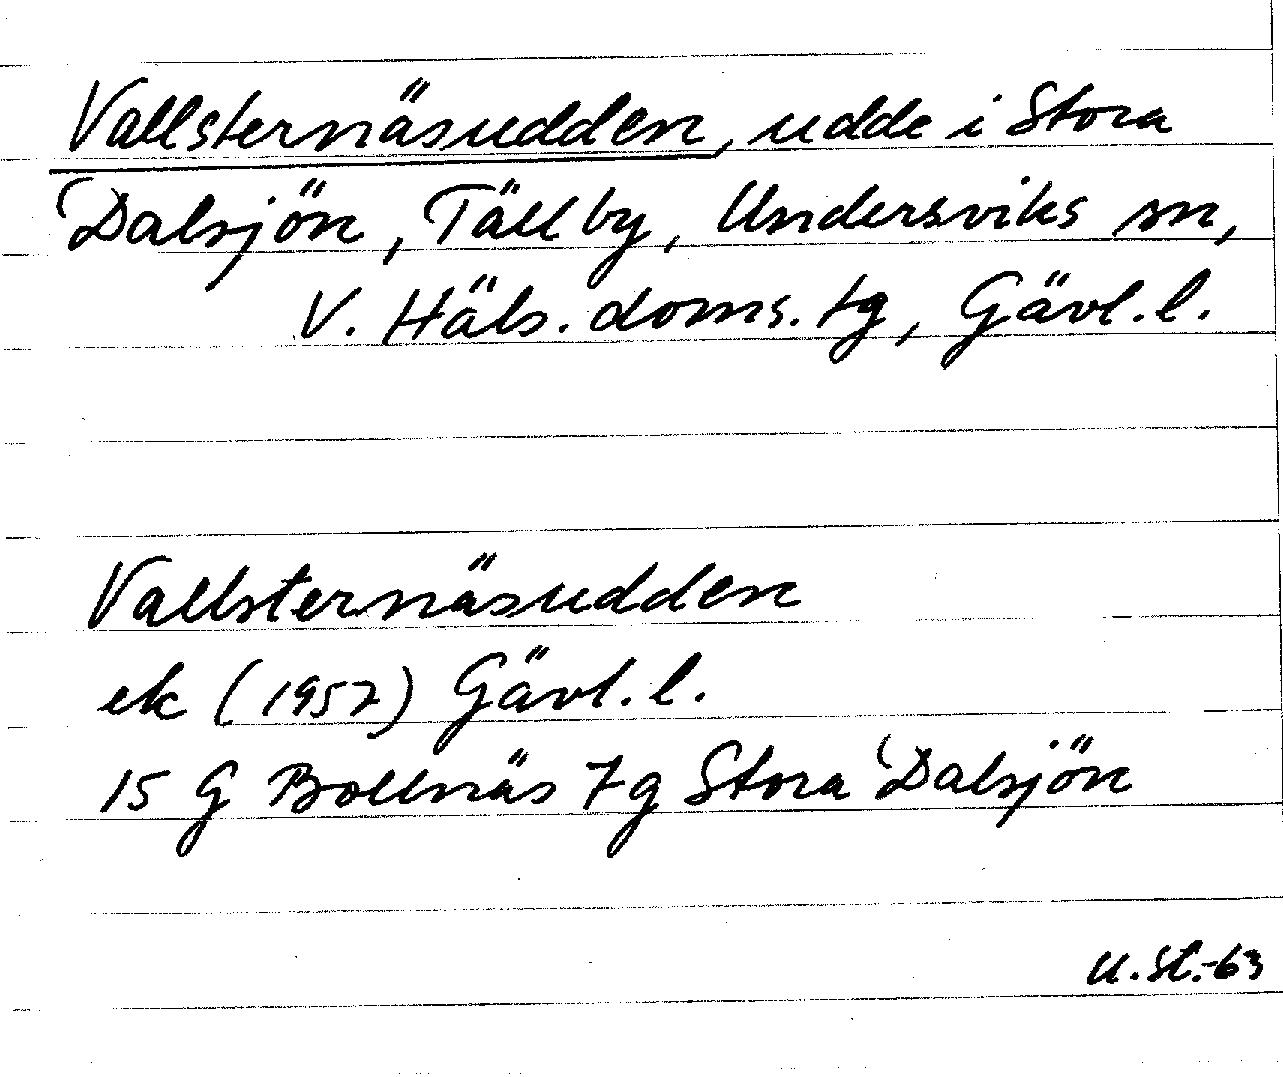 Vallsternäsudden, udde i Stora
Dalsjön, Täll by, Undersviks sn,
V. Häls. doms. tg, Gävl. l.
Vallsternäsudden
ek (1957) Gävl. l.
15 G Bollnäs 7g Stora Dalsjön
U. St. -63